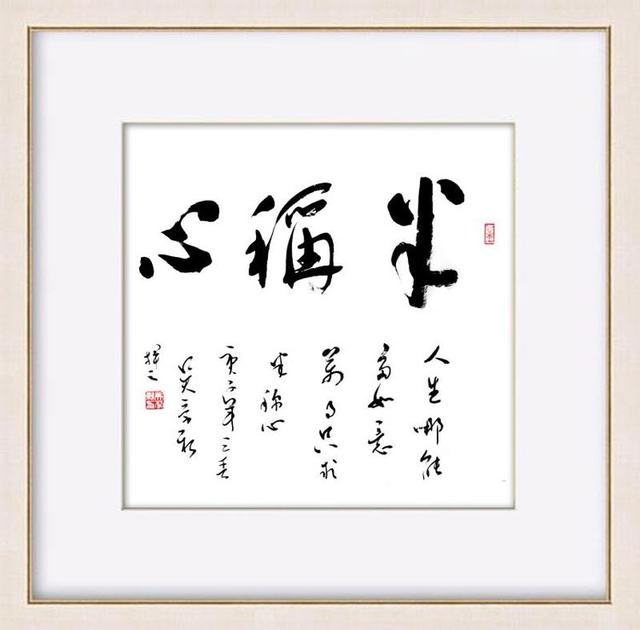 半稱心
人生哪能
多如意
萬事只求
半称心
庚子年三春